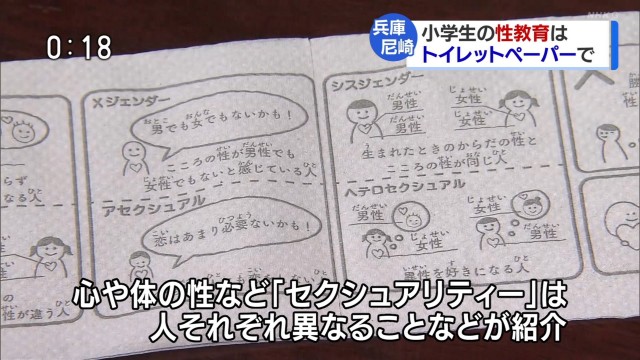 0:18
兵庫
尼崎
小学生の性教育は
トイレットペーパーで
Xジェンダー
男でも女でもないかも！
こころの性が男性でも
女性でもないと感じている人
アセクシュアル
恋はあまり必要ないかも！
シスジェンダー
男性
男性
女性
女性
生まれたときのからだの性と
こころの性が同じ人
ヘテロセクシュアル
男性
女性
女性
男性
異性を好きになる人
らず
なる人
性が違う人
心や体の性など「セクシュアリティー」は
人それぞれ異なることなどが紹介